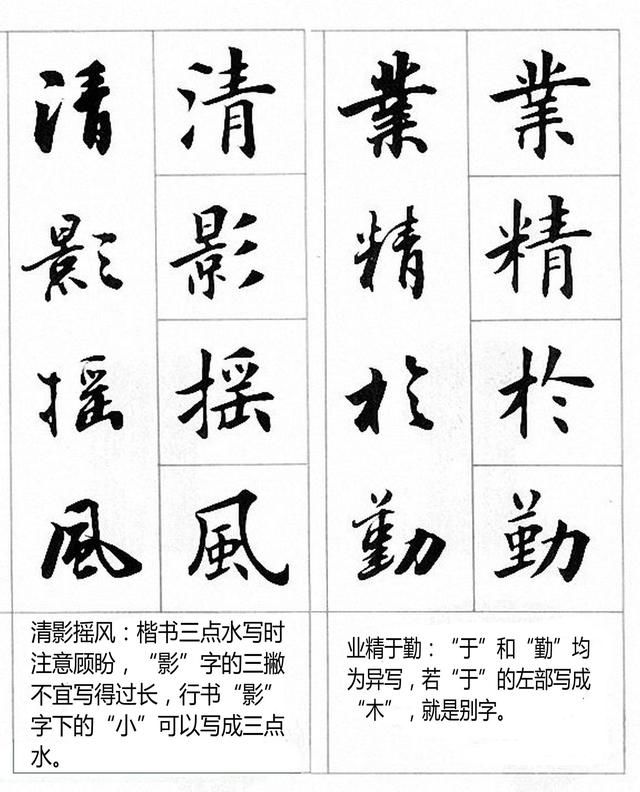 清影摇風
清影摇風
清影摇风：楷书三点水写时
注意顾盼，“影”字的三撇
不宜写得过长，行书“影”
字下的“小”可以写成三点
水。
業精於勤
業精於勤
业精于勤：“于”和“勤”均
为异写，若“于”的左部写成
“木”，就是别字。